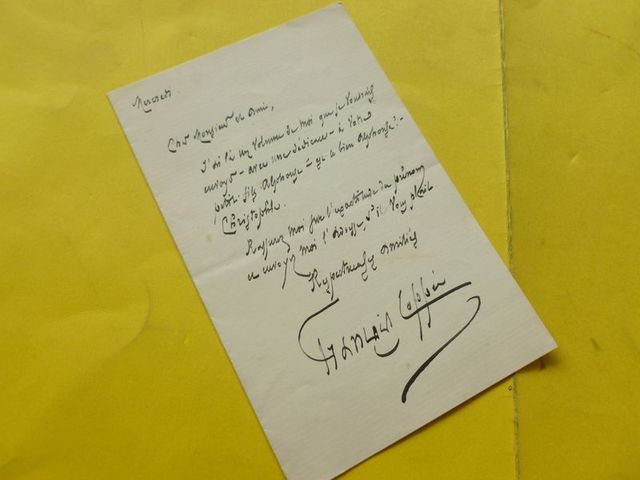 Mercredi
Cher Monsieur et Ami,
J'ai là un volume de moi que je voudrais
envoyer - avec une dédicace - à votre
petit-fils Alphonse - est-ce bien Alphonse? -
Christophle.
Rassurez moi sur l'exactitude du prénom
et envoyez moi l'adresse, s'il vous plaît
Respectueuses amitiés
François Coppée